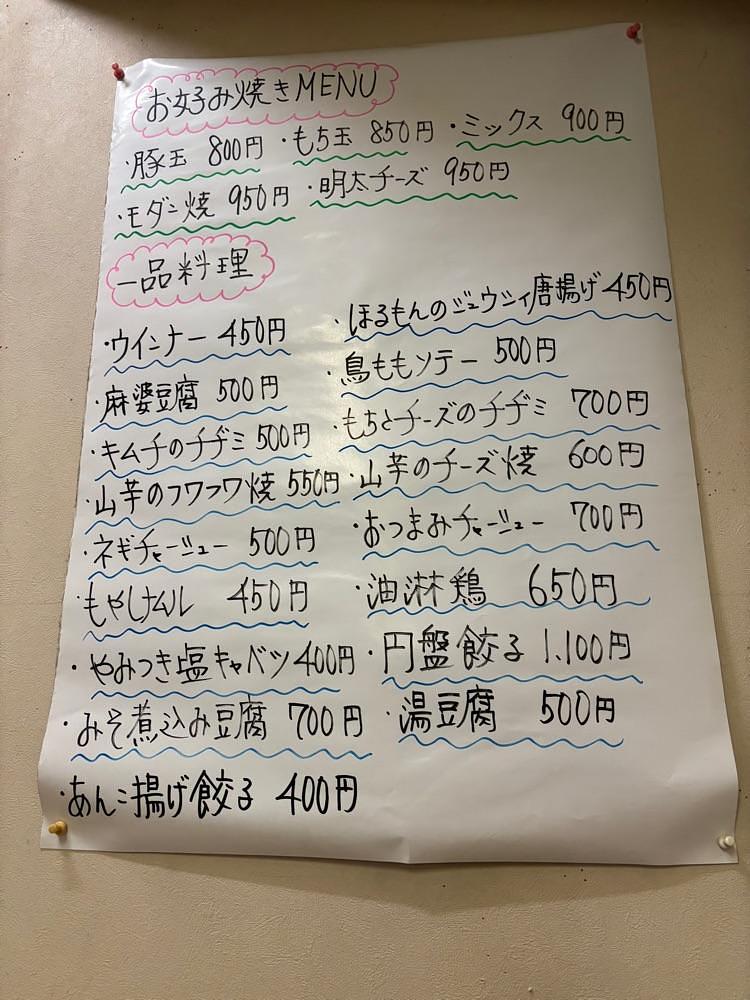 お好み焼きMENU
・豚玉 800円 ・もち玉 850円 ・ミックス 900円
・モダン焼 950円 ・明太チーズ 950円
一品料理
・ウインナー 450円 ・ほるもんのジュウシィ唐揚げ 450円
・麻婆豆腐 500円 ・鳥ももソテー 500円
・キムチのチヂミ 500円 ・もちとチーズのチヂミ 700円
・山芋のフワフワ焼 550円 ・山芋のチーズ焼 600円
・ネギチャーシュー 500円 ・おつまみチャーシュー 700円
・もやしナムル 450円 ・油淋鶏 650円
・やみつき塩キャベツ 400円 ・円盤餃子 1,100円
・みそ煮込み豆腐 700円 ・湯豆腐 500円
・あんこ揚げ餃子 400円